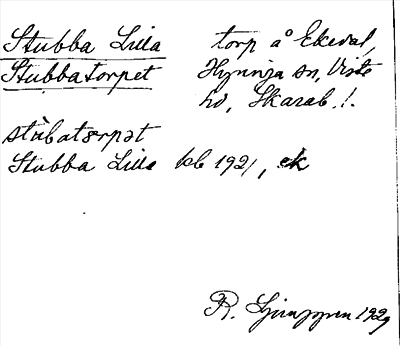 Stubba Lilla torp å Ekeval,
Stubbatorpet Hyringa sn, Viste
hd, Skarab. l.
stùbatorpət
Stubba Lilla kb 1921, ek
R. Ljunggren 1929